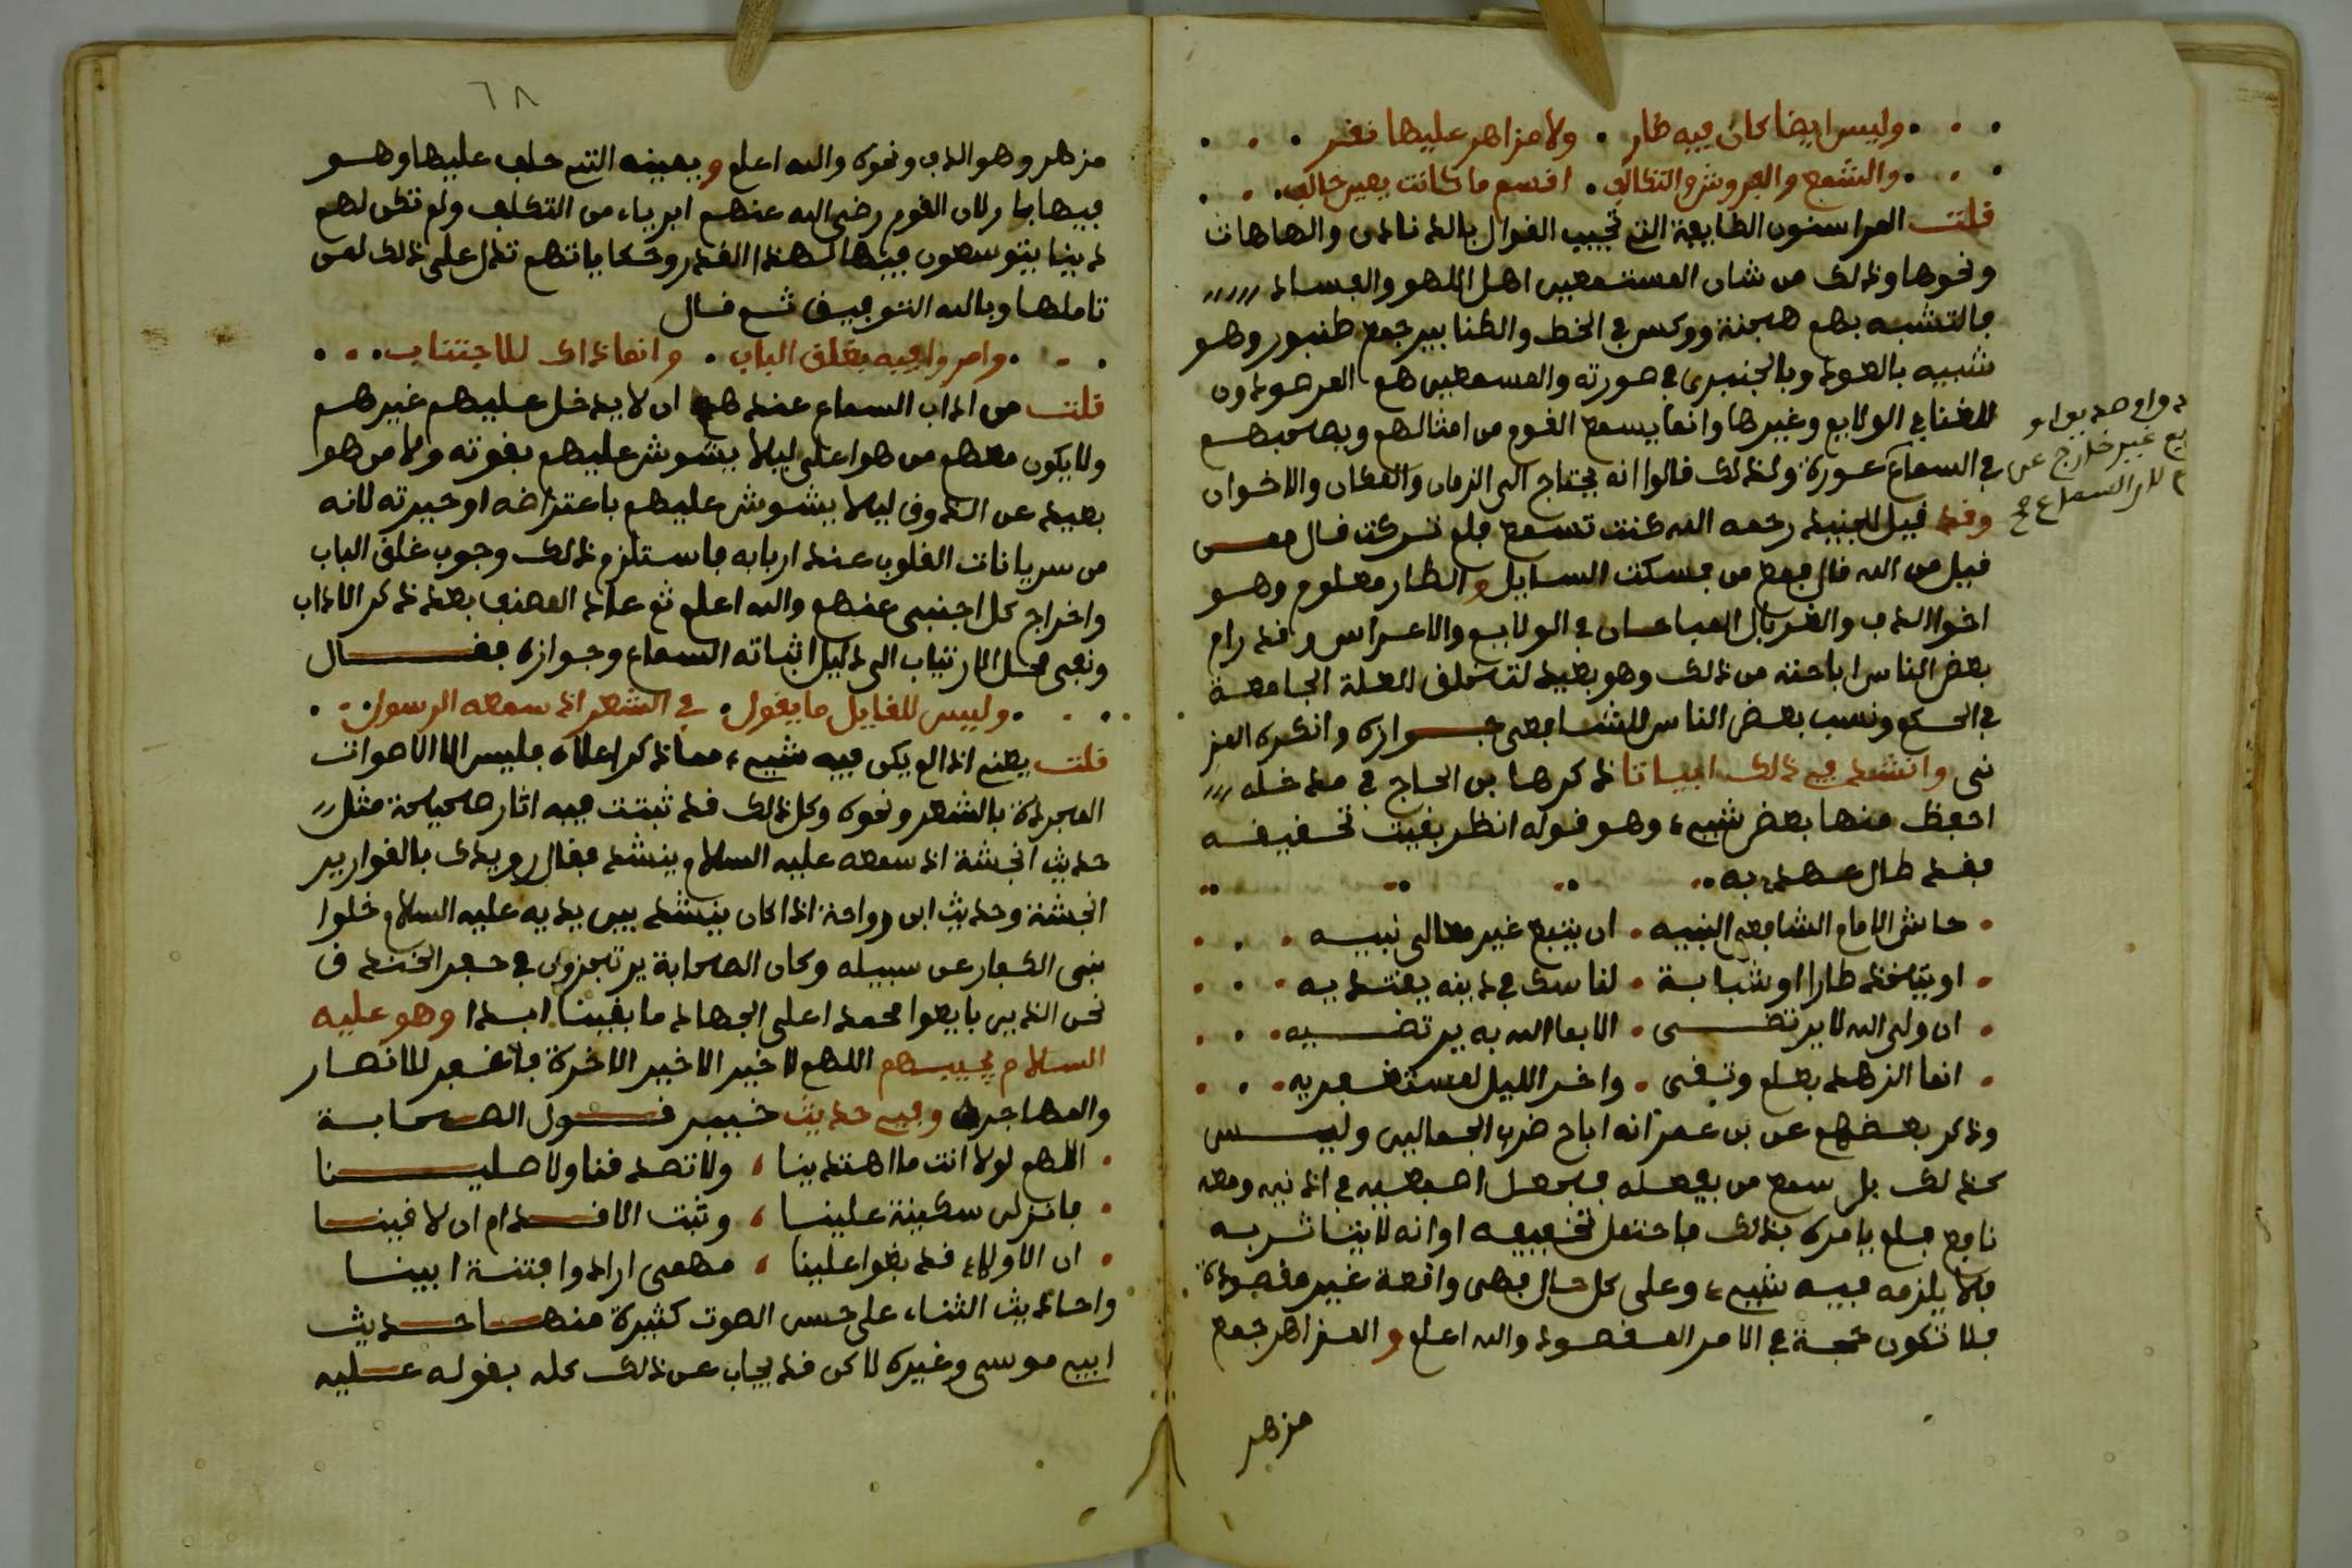 وليس ايضا كان فيه طار . ولا مزاهر عليها نقر
والشمع والفروش والتكالف . اقسم ما كانت بعين حالف
قلت المراسنون الطايفة التي تجيب القوال بالدنادن والهاهات
ونحوها وذلك من شان المستمعين اهل اللهو والفساد
فالتشبه بهم هجنة ووكس في الخط والطنابير جمع طنبور وهو
شبيه بالعود وبالجنبري في صورته والمسمعين هم المرصودون
للغنا في الولايم وغيرها وانما يسمع القوم من امثالهم وبصاحبهم
في السماع عورة ولذلك قالوا انه يحتاج الى الزمان والمكان والاخوان
وقد قيل للجنيد رحمه الله كنت تسمع فلم تركت قال مع من
قيل من الله قال فمع من فسكت السايل والطار معلوم وهو
اخو الدف والغربال المباحان في الولايم والاعراس وقد رام
بعض الناس اباحته من ذلك وهو بعيد لتخلف العلة الجامعة
في الحكم ونسب بعض الناس للشافعي جوازه وانكره المز
نى وانشد في ذلك ابياتا ذكرها بن الحاج في مدخله
احفظ منها بعض شيء وهو قوله انظر بقيت تحقيقه
فقد طال عهدي به
حاشى الامام الشافعي النبيه . ان يتبع غير معالى نبيه
او يتخذ طارا او شبابة . لناسك في دينه يقتديه
ان ولي الله لا يرتضى . الا بما الله به يرتضيه
انما الزهد بعلم وتقى . واخر الليل لمستغفريه
وذكر بعضهم عن بن عمر انه اباح ضرب الجماليين وليس
كذلك بل سمع من يفعله فجعل اصبعيه في اذنيه ومعه
نافع فلم يامره بذلك فاحتمل تخفيفه او انه لا يتاثر به
فلا يلزمه فيه شيء وعلى كل حال فهي واقعة غير مقصودة
فلا تكون حجة في الامر المقصود والله اعلم والمزاهر جمع
مزهر
يع غير خارج عن
لار السماع صح
٦٨
مزهر وهو الدف ونحوه والله اعلم ويمينه التي حلف عليها وهو
فيها بار لان القوم رضي الله عنهم ابرياء من التكلف ولم تكن لهم
دنيا يتوسعون فيها لهذا القدر وحكاياتهم تدل على ذلك لمن
تاملها وبالله التوفيق ثم قال
وامروا فيه بغلق الباب . وانما ذاك للاجتناب
قلت من اداب السماع عندهم ان لا يدخل عليهم غيرهم
ولا يكون معهم من هو اعلى ليلا يشوش عليهم بقوته ولا من هو
بعيد عن الذوق ليلا يشوش عليهم باعتراضه او حيرته لانه
من سريانات القلوب عند اربابه فاستلزم ذلك وجوب غلق الباب
واخراج كل اجنبي عنهم والله اعلم ثم عاد المصنف بعد ذكر الاداب
ونفى محل الارتياب الى دليل اثباته السماع وجوازه فقال
وليس للقايل ما يقول . في الشعر اذ سمعه الرسول
قلت يعني اذا لم يكن فيه شيء مما ذكر اعلاه فليس الا الاصوات
المجردة بالشعر ونحوه وكل ذلك قد ثبتت فيه اثار صحيحة مثل
حديث انجشة اذ سمعه عليه السلام ينشد فقال رويدك بالقوارير
انجشة وحديث ابن رواحة اذا كان ينشد بين يديه عليه السلام خلوا
بنى الكفار عن سبيله وكان الصحابة يرتجزون في حفر الخندق
نحن الذين بايعوا محمدا على الجهاد ما بقينا ابدا وهو عليه
السلام يجيبهم اللهم لا خير الا خير الاخرة فاغفر للانصار
والمهاجره وفي حديث خيبر قول الصحابة
اللهم لولا انت ما اهتدينا ، ولا تصدقنا ولا صلينا
فانزلن سكينة علينا ، وثبت الاقدام ان لاقينا
ان الاولاء قد بغوا علينا ، مهمى ارادوا فتنة ابينا
واحاديث الثناء على حسن الصوت كثيرة منها حديث
ابي موسى وغيره لاكن قد يجاب عن ذلك كله بقوله عليه